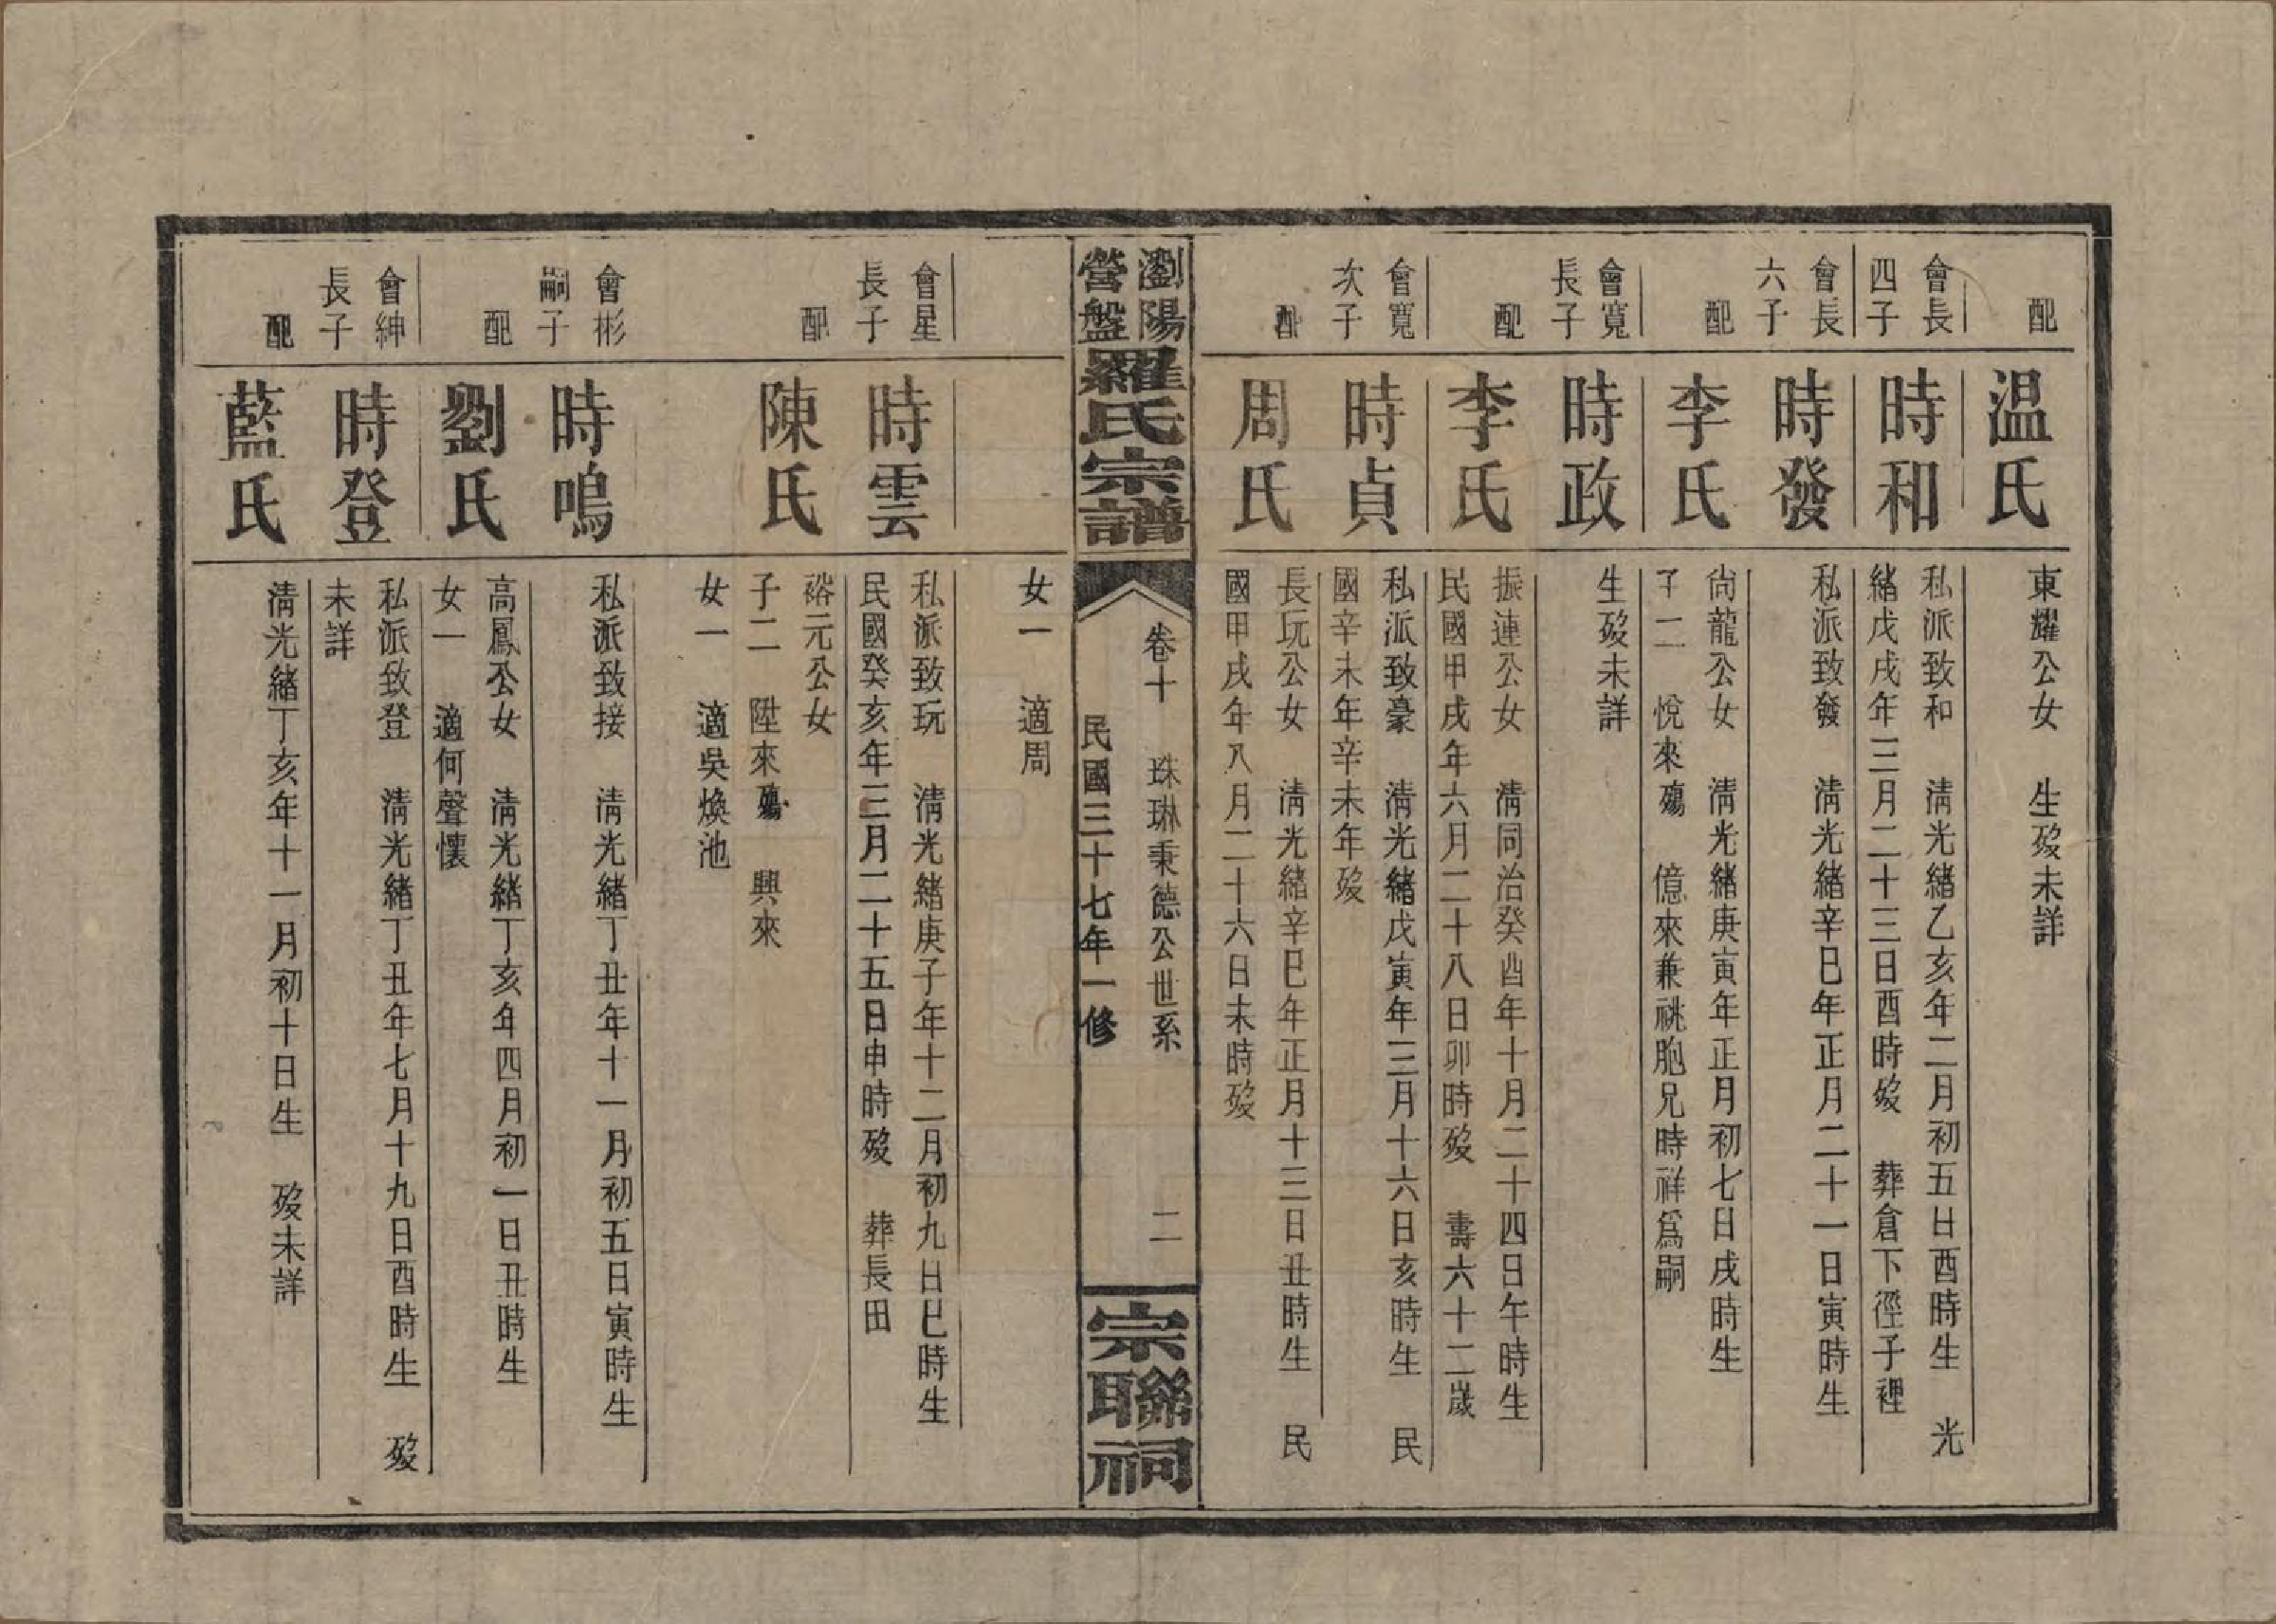 配
温氏
東耀公女　生歿未詳
會長
四子
時和
私派致和　清光緒乙亥年二月初五日酉時生　光
緒戊戌年三月二十三日酉時歿　葬倉下徑子裡
會長
六子
時發
私派致發　清光緒辛巳年正月二十一日寅時生
配
李氏
尙龍公女　清光緒庚寅年正月初七日戌時生
子二　悅來殤　億來兼祧胞兄時祥爲嗣
會寬
長子
時政
生歿未詳
配
李氏
振連公女　清同治癸酉年十月二十四日午時生
民國甲戌年六月二十八日卯時歿　壽六十二歲
會寬
次子
時貞
私派致豪　清光緒戊寅年三月十六日亥時生　民
國辛未年辛未年歿
配
周氏
長玩公女　清光緒辛巳年正月十三日丑時生　民
國甲戌年八月二十六日未時歿
瀏陽
營盤
羅氏宗譜
卷十　珠琳秉德公世系　二
民國三十七年一修
宗聯祠
女一　適周
會星
長子
時雲
私派致玩　清光緒庚子年十二月初九日巳時生
民國癸亥年三月二十五日申時歿　葬長田
配
陳氏
裕元公女
子二　陞來殤　興來
女一　適吳煥池
會彬
嗣子
時鳴
私派致接　清光緒丁丑年十一月初五日寅時生
配
劉氏
高鳳公女　清光緒丁亥年四月初一日丑時生
女一　適何聲懷
會紳
長子
時登
私派致登　清光緒丁丑年七月十九日酉時生　歿
未詳
配
藍氏
清光緒丁亥年十一月初十日生　歿未詳